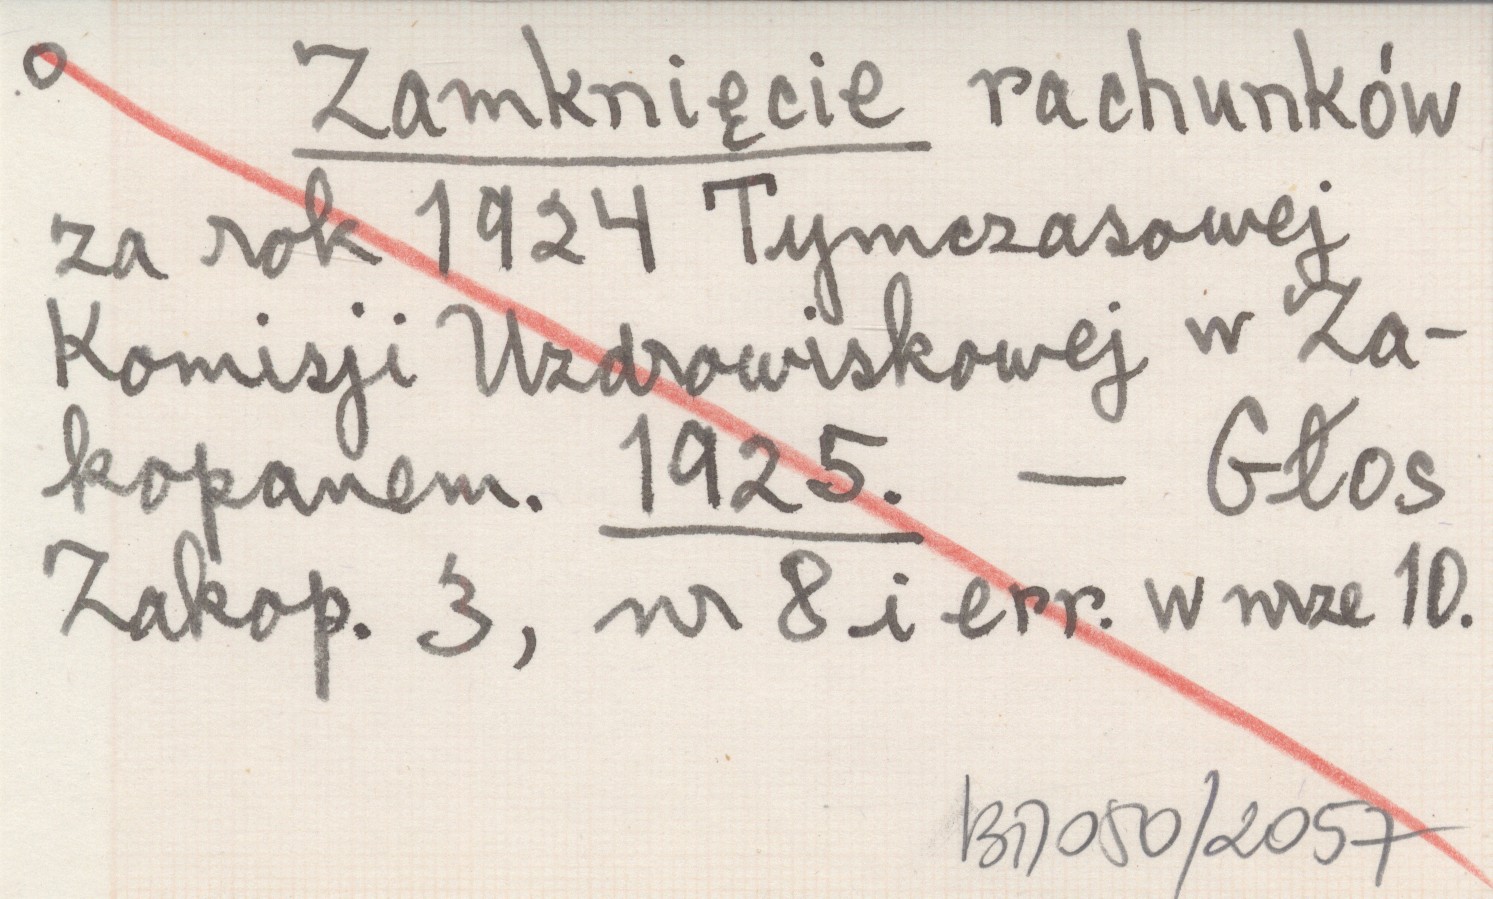 Zamknięcie rachunków
za rok 1924 Tymczasowej
Komisji Uzdrowiskowej w Za-
kopanem. 1925. — Głos
Zakop. 3, nr 8 i err. w nrze 10.
050/2057